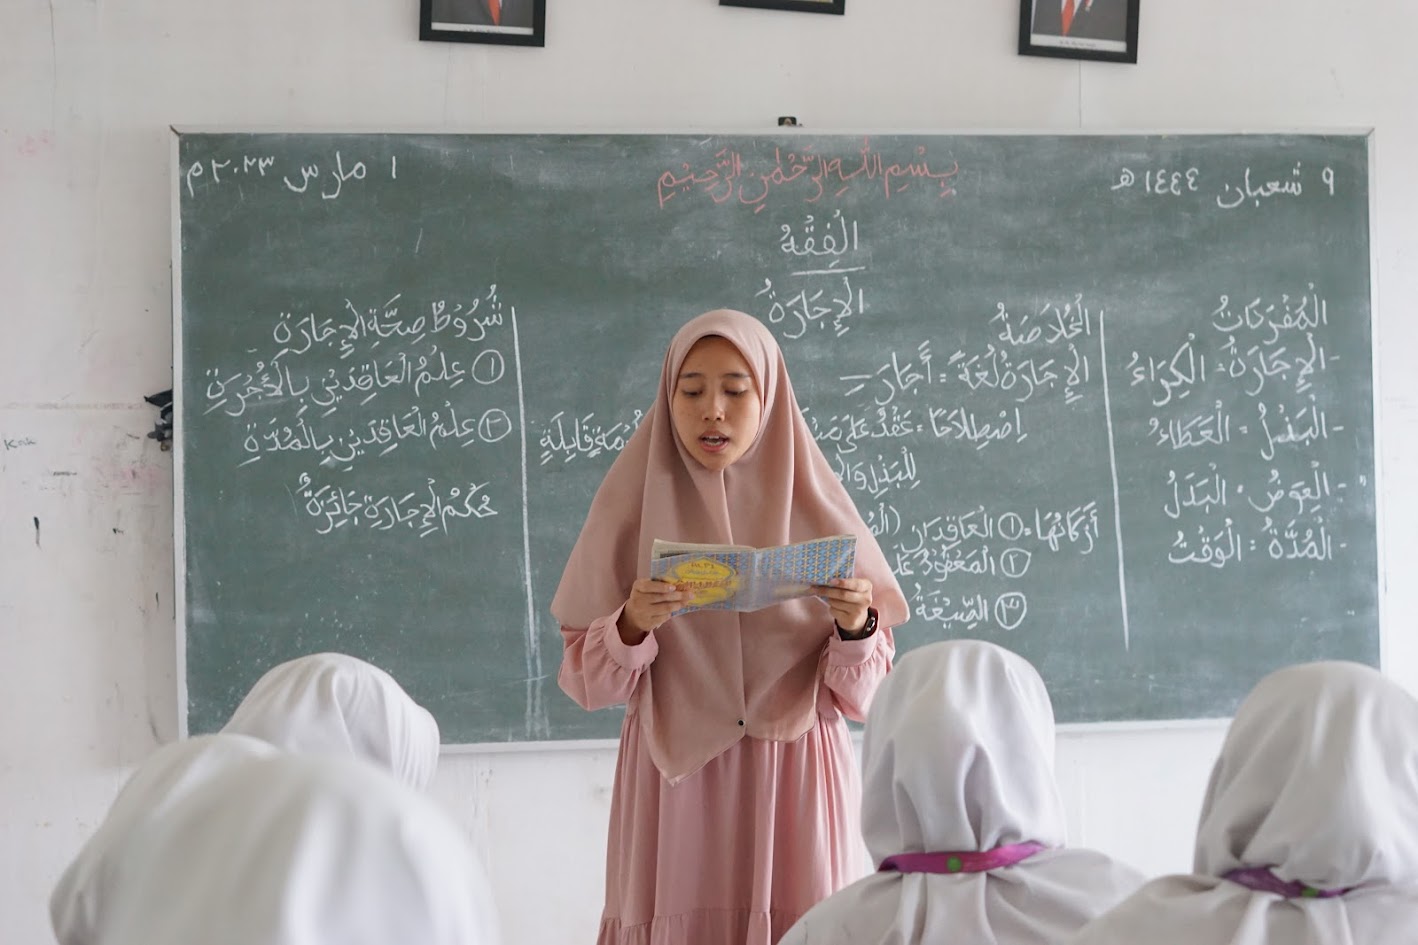 ٩ شعبان ١٤٤٤ هـ
بِسْمِ اللَّهِ الرَّحْمٰنِ الرَّحِيْمِ
١ مارس ٢٠٢٣ م
الْفِقْهُ
الْإِجَارَةُ
الْمُفْرَدَاتُ
- الْإِجَارَةُ = الْكِرَاءُ
- الْبَذْلُ = الْعَطَاءُ
- الْعِوَضُ = الْبَدَلُ
- الْمُدَّةُ = الْوَقْتُ
الْخُلَاصَةُ
الْإِجَارَةُ لُغَةً = أَجَارَ -
اِصْطِلَاحًا = عَقْدٌ عَلَى قَابِلَةٍ
لِلْبَذْلِ
أَرْكَانُهَا = ① الْعَاقِدَانِ
② الْمَعْقُوْدُ
③ الصِّيْغَةُ
شُرُوْطُ صِحَّةِ الْإِجَارَةِ
① عِلْمُ الْعَاقِدَيْنِ بِالْأُجْرَةِ
② عِلْمُ الْعَاقِدَيْنِ بِالْمُدَّةِ
حُكْمُ الْإِجَارَةِ جَائِزَةٌ